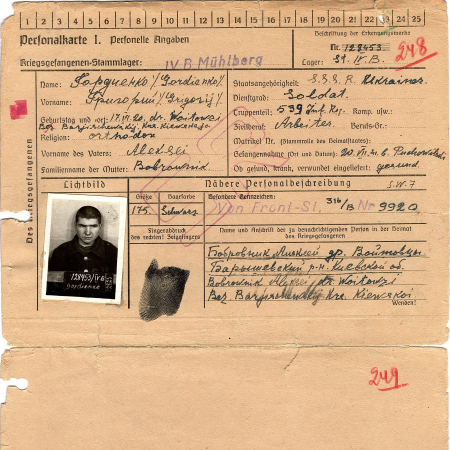 1 2 3 4 5 6 7 8 9 10 11 12 13 14 15 16 17 18 19 20 21 22 23 24 25
Personalkarte I. Personelle Angaben
Beschriftung der Erkennungsmarke
Nr. 128453
248
Kriegsgefangenen-Stammlager: IV B Mühlberg
Lager: St. IV B.
Des Kriegsgefangenen
Name: Гордиенко /Gordienko/
Vorname: Григорий /Grigorij/
Geburtstag und -ort: 17.VI.20, dr. Woitowzi
Bez. Kra. Kiewskaja
Religion: orthodox
Vorname des Vaters: Aleksei
Familienname der Mutter: Bobrownik
Staatsangehörigkeit: S.S.S.R. Ukrainer.
Dienstgrad: Soldat.
Truppenteil: 539 Inf. Reg. Komp. usw.:
Zivilberuf: Arbeiter. Berufs-Gr.:
Matrikel Nr. (Stammrolle des Heimatstaates):
Gefangennahme (Ort und Datum):
Ob gesund, krank, verwundet eingeliefert: gesund.
Lichtbild
Nähere Personalbeschreibung
S.W.7
Größe
Haarfarbe
Besondere Kennzeichen
175. Schwarz
Von Front-St. 316/B Nr 9920
Fingerabdruck
des rechten! Zeigefingers
Name und Anschrift der zu benachrichtigenden Person in der Heimat
des Kriegsgefangenen
128453/IVB
Gordienko
Бобровник Алексей др. Войтовцы
Барышевский р-н Киевской об.
Bobrownik Aleksei dr. Woitowzi
Bez. Kra. Kiewskoi
Wenden!
249